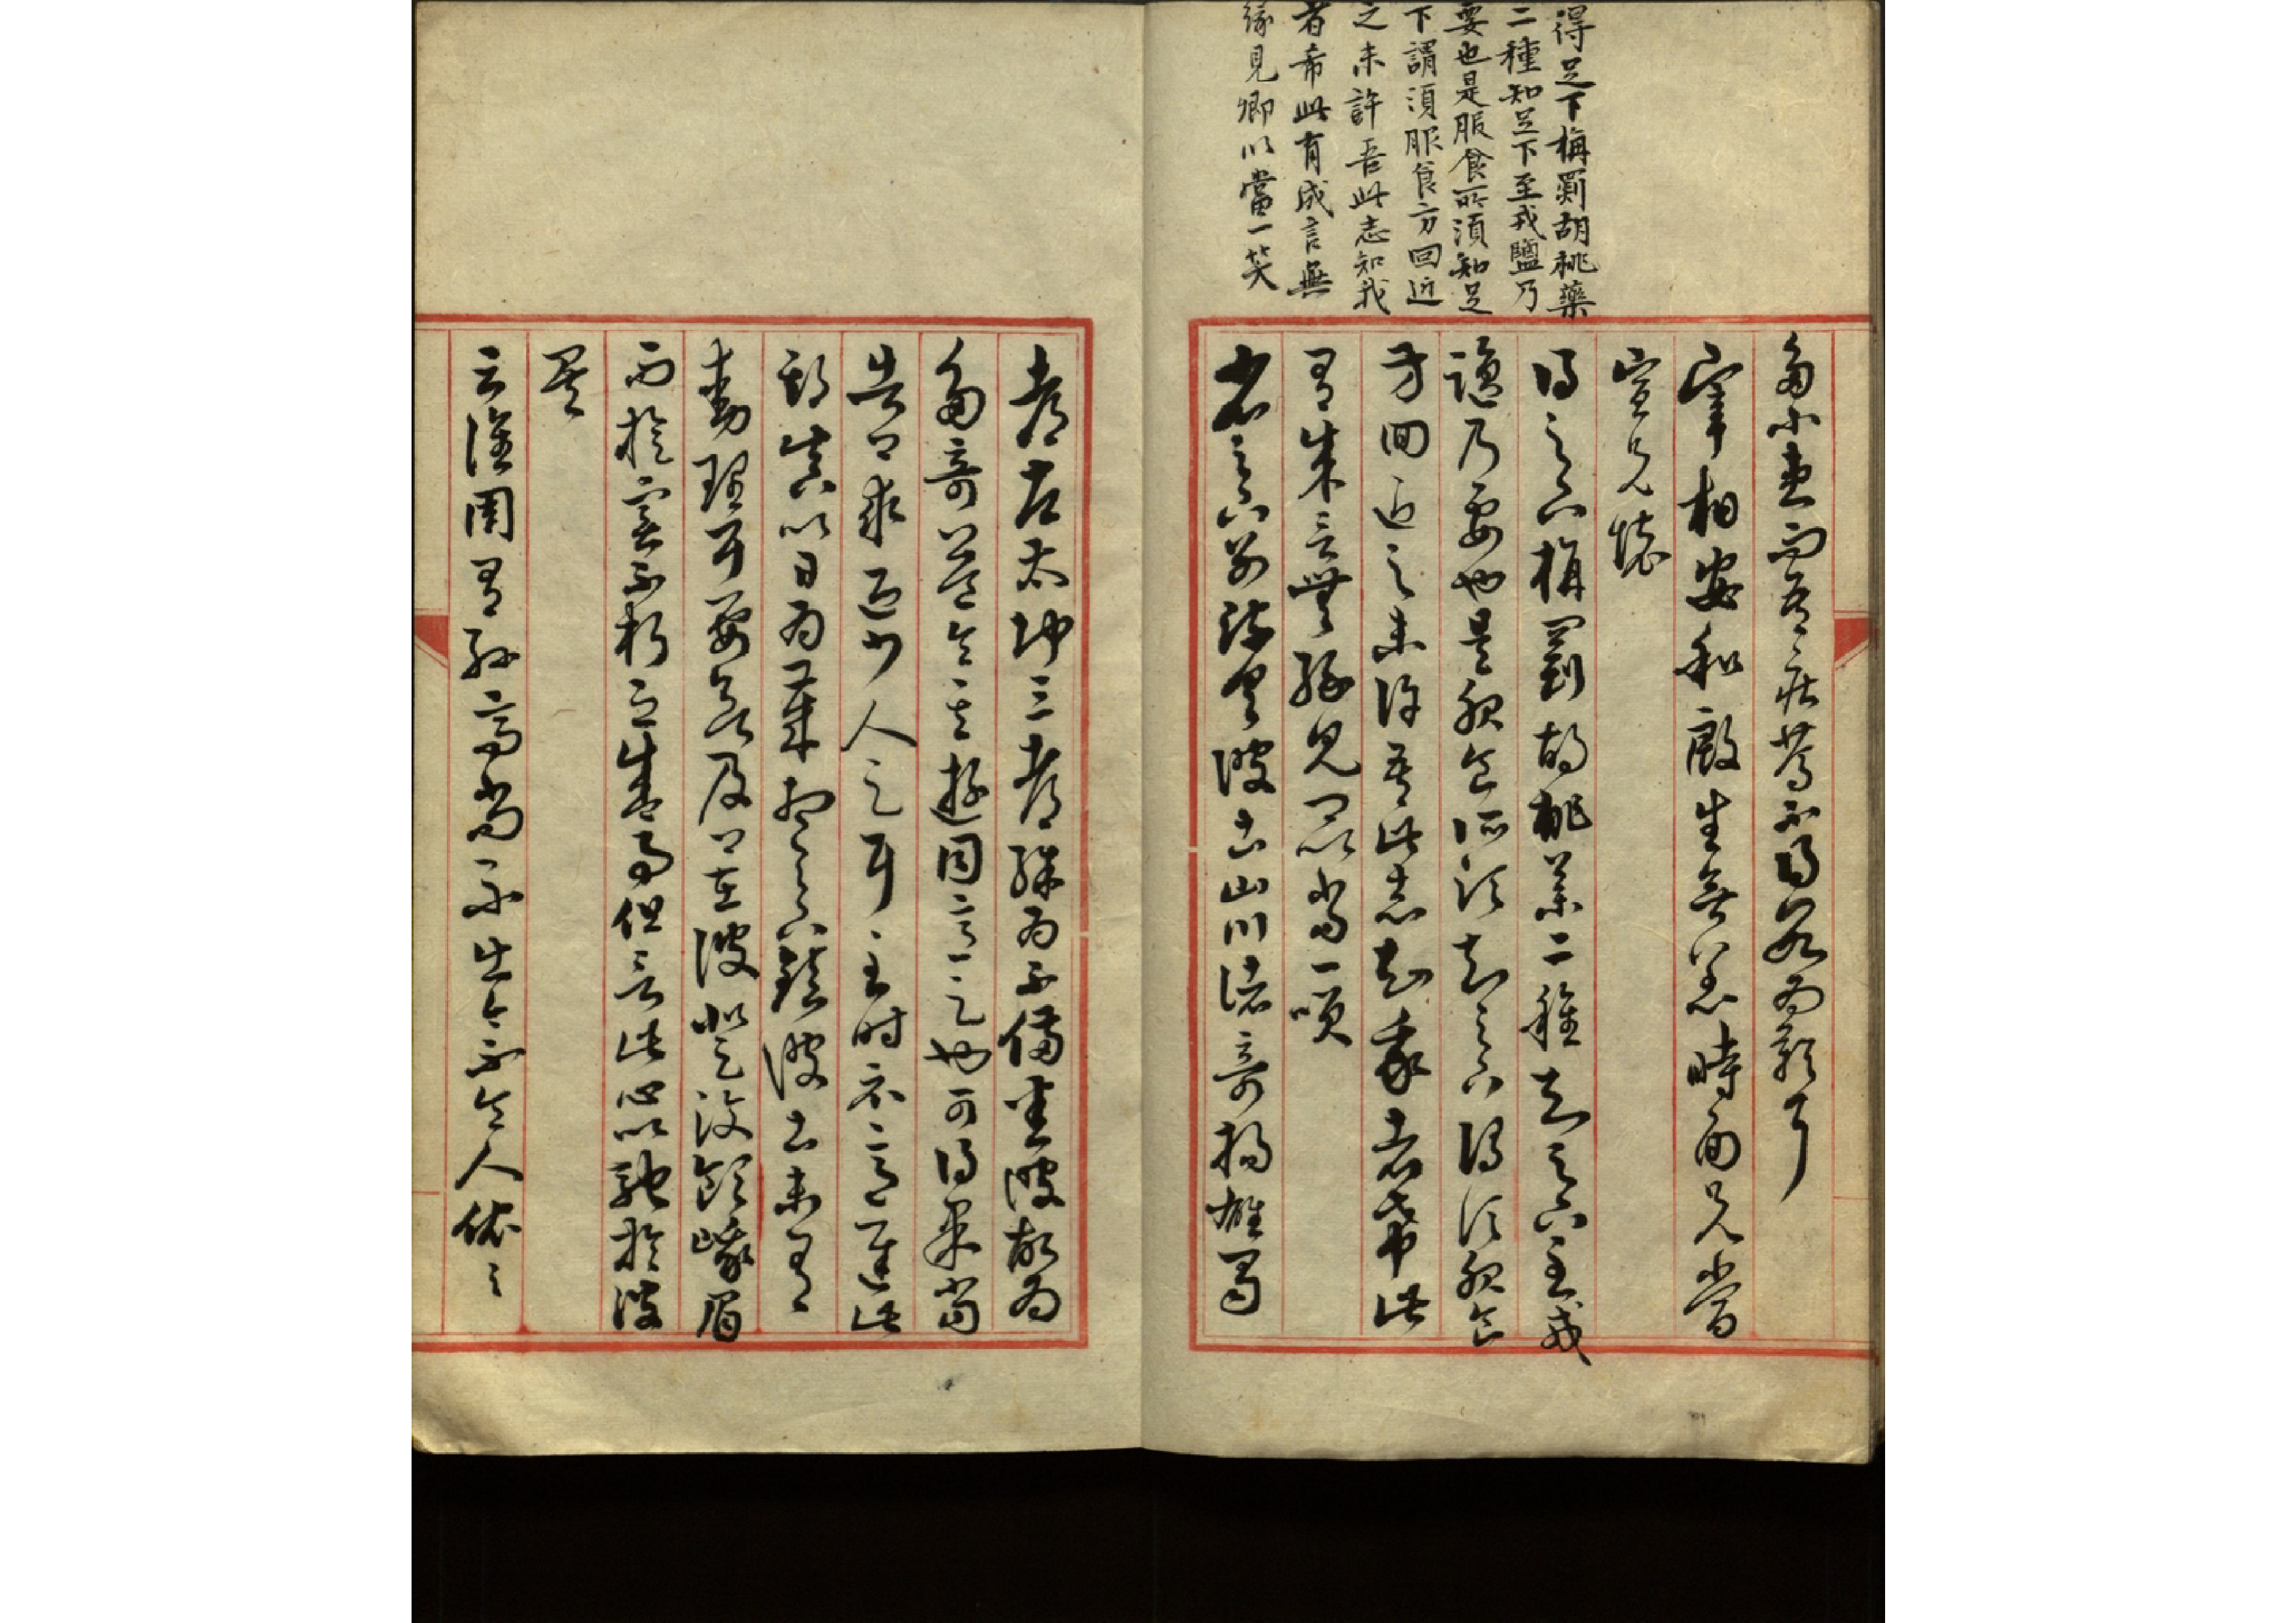 得足下旃罽胡桃藥
二種知足下至戎鹽乃
要也是服食所須知足
下謂須服食方回近
之未許吾此志知我
者希此有成言無
緣見卿以當一笑
多小患而吾疾篤不得數為歎耳
宰相安和殷生無恙時面兄當
宣兄懷
得足下旃罽胡桃藥二種知足下至戎
鹽乃要也是服食所須知足下謂須服食
方回近之未許吾此志知我者希此
有成言無緣見卿以當一笑
省足下別疏具彼土山川諸奇揚雄蜀
都左太沖三都殊為不備悉彼故為
多奇益令其遊目意足也可得果當
告卿求迎少人足耳至時示意遲此
期真以日為歲想足下鎮彼土未有
動理耳要欲及卿在彼登汶嶺峨眉
而旋實不朽之盛事但言此心以馳於彼
矣
云譙周有孫高尚不出今人依依